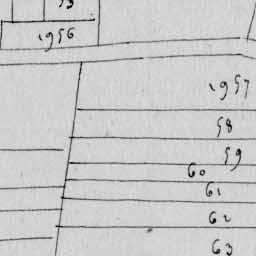 53
1956
1957
58
59
60
61
62
63